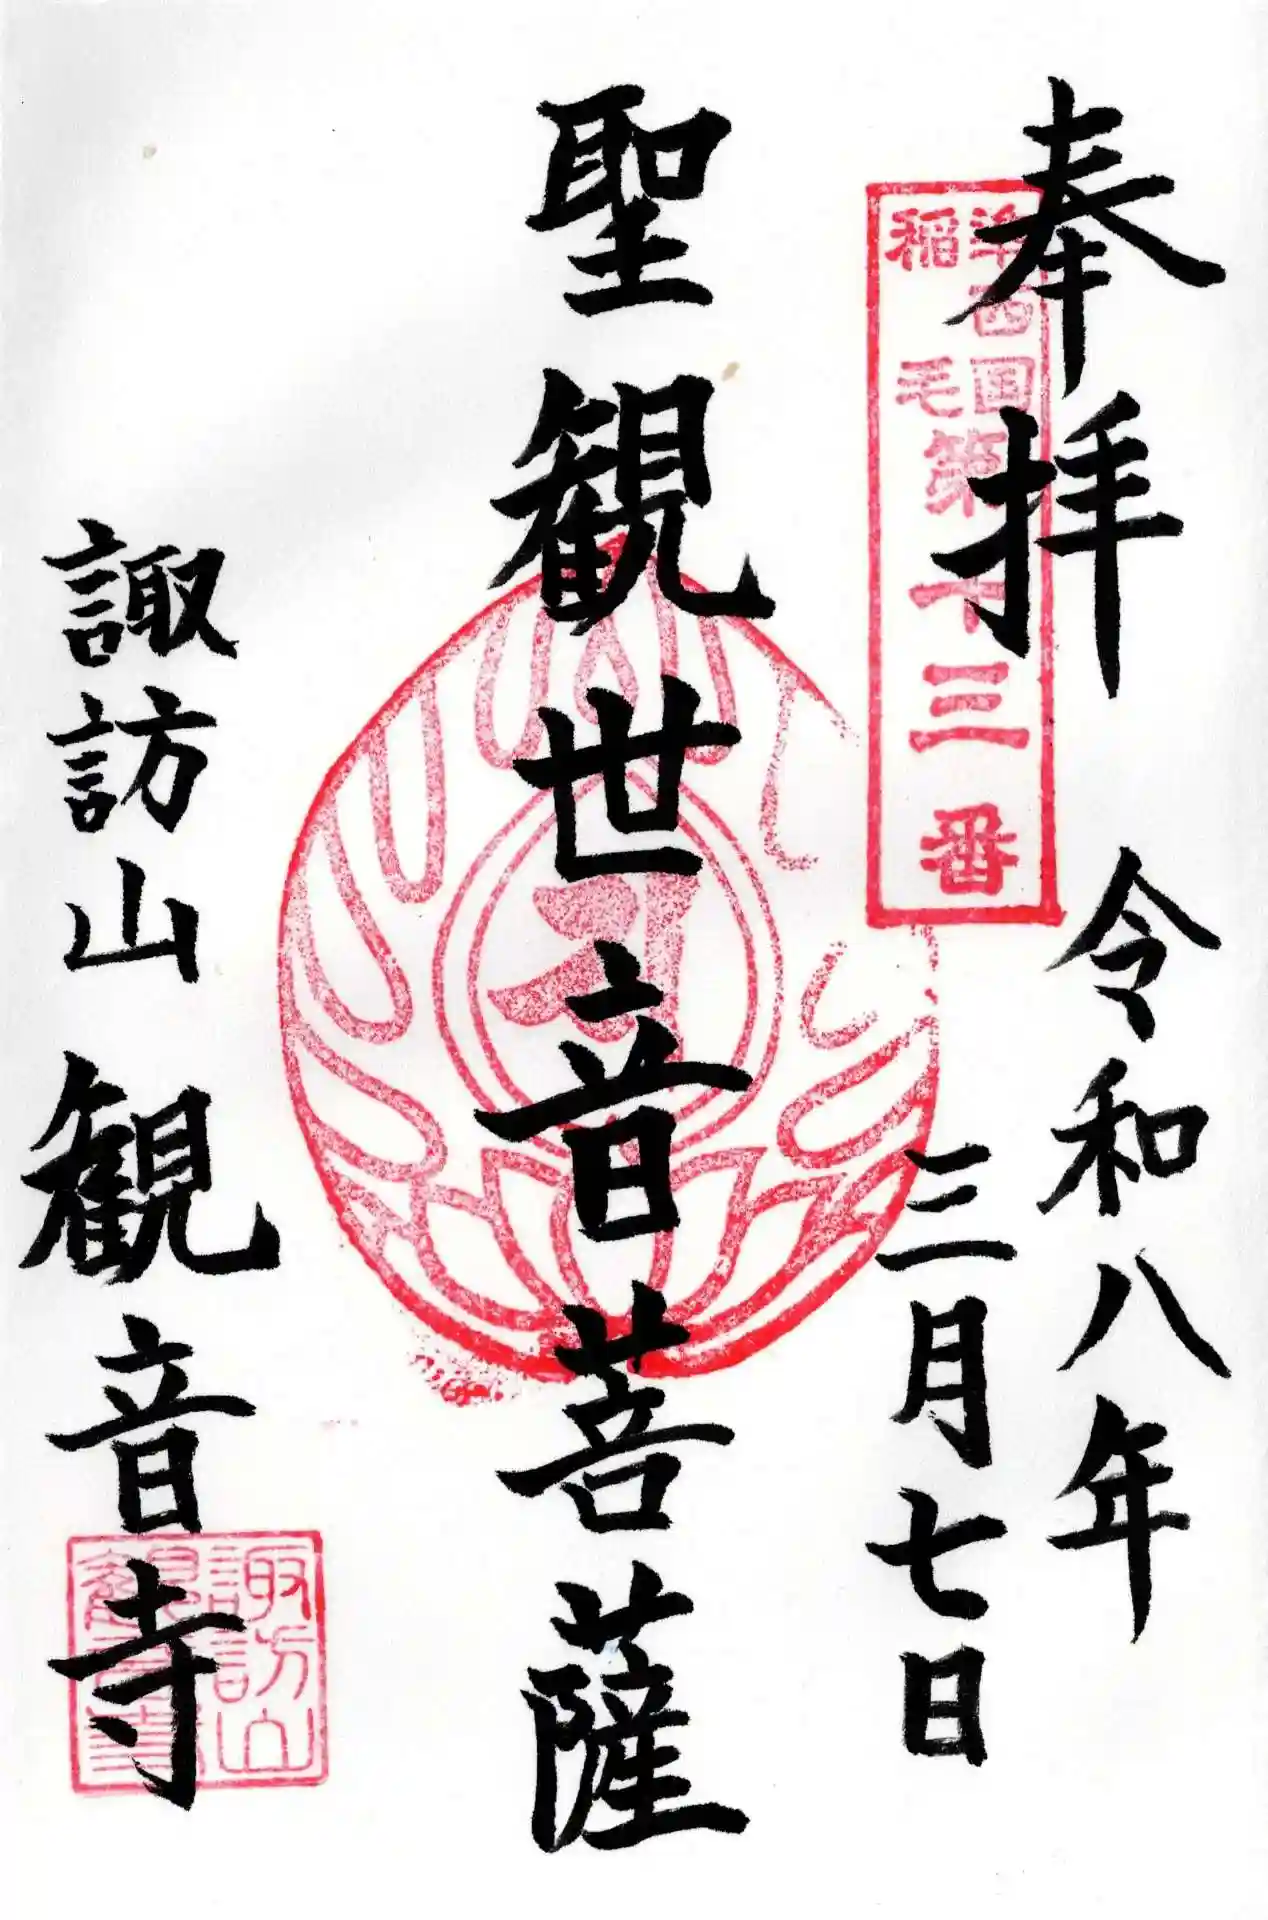 奉拝
準西国
稲毛
第十三番
令和八年
三月七日
聖観世音菩薩
諏訪山観音寺
諏訪山
観音寺